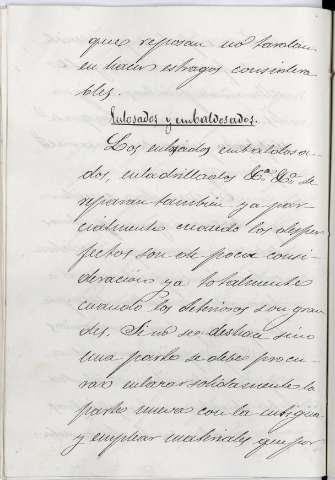 que reposan no tardan
en hacer estragos considera
bles.
Enlosados y embaldosados.
Los enlosados, embaldosa-
dos, enladrillados &a &a se
reparan tambien ya par-
cialmente cuando los desper
fectos son de poca consi-
deracion, ya totalmente
cuando los deterioros son gran
des. Si no se deshace sino
una parte se debe procu-
rar enlazar solidamente la
parte nueva con la antigua
y emplear materiales que por